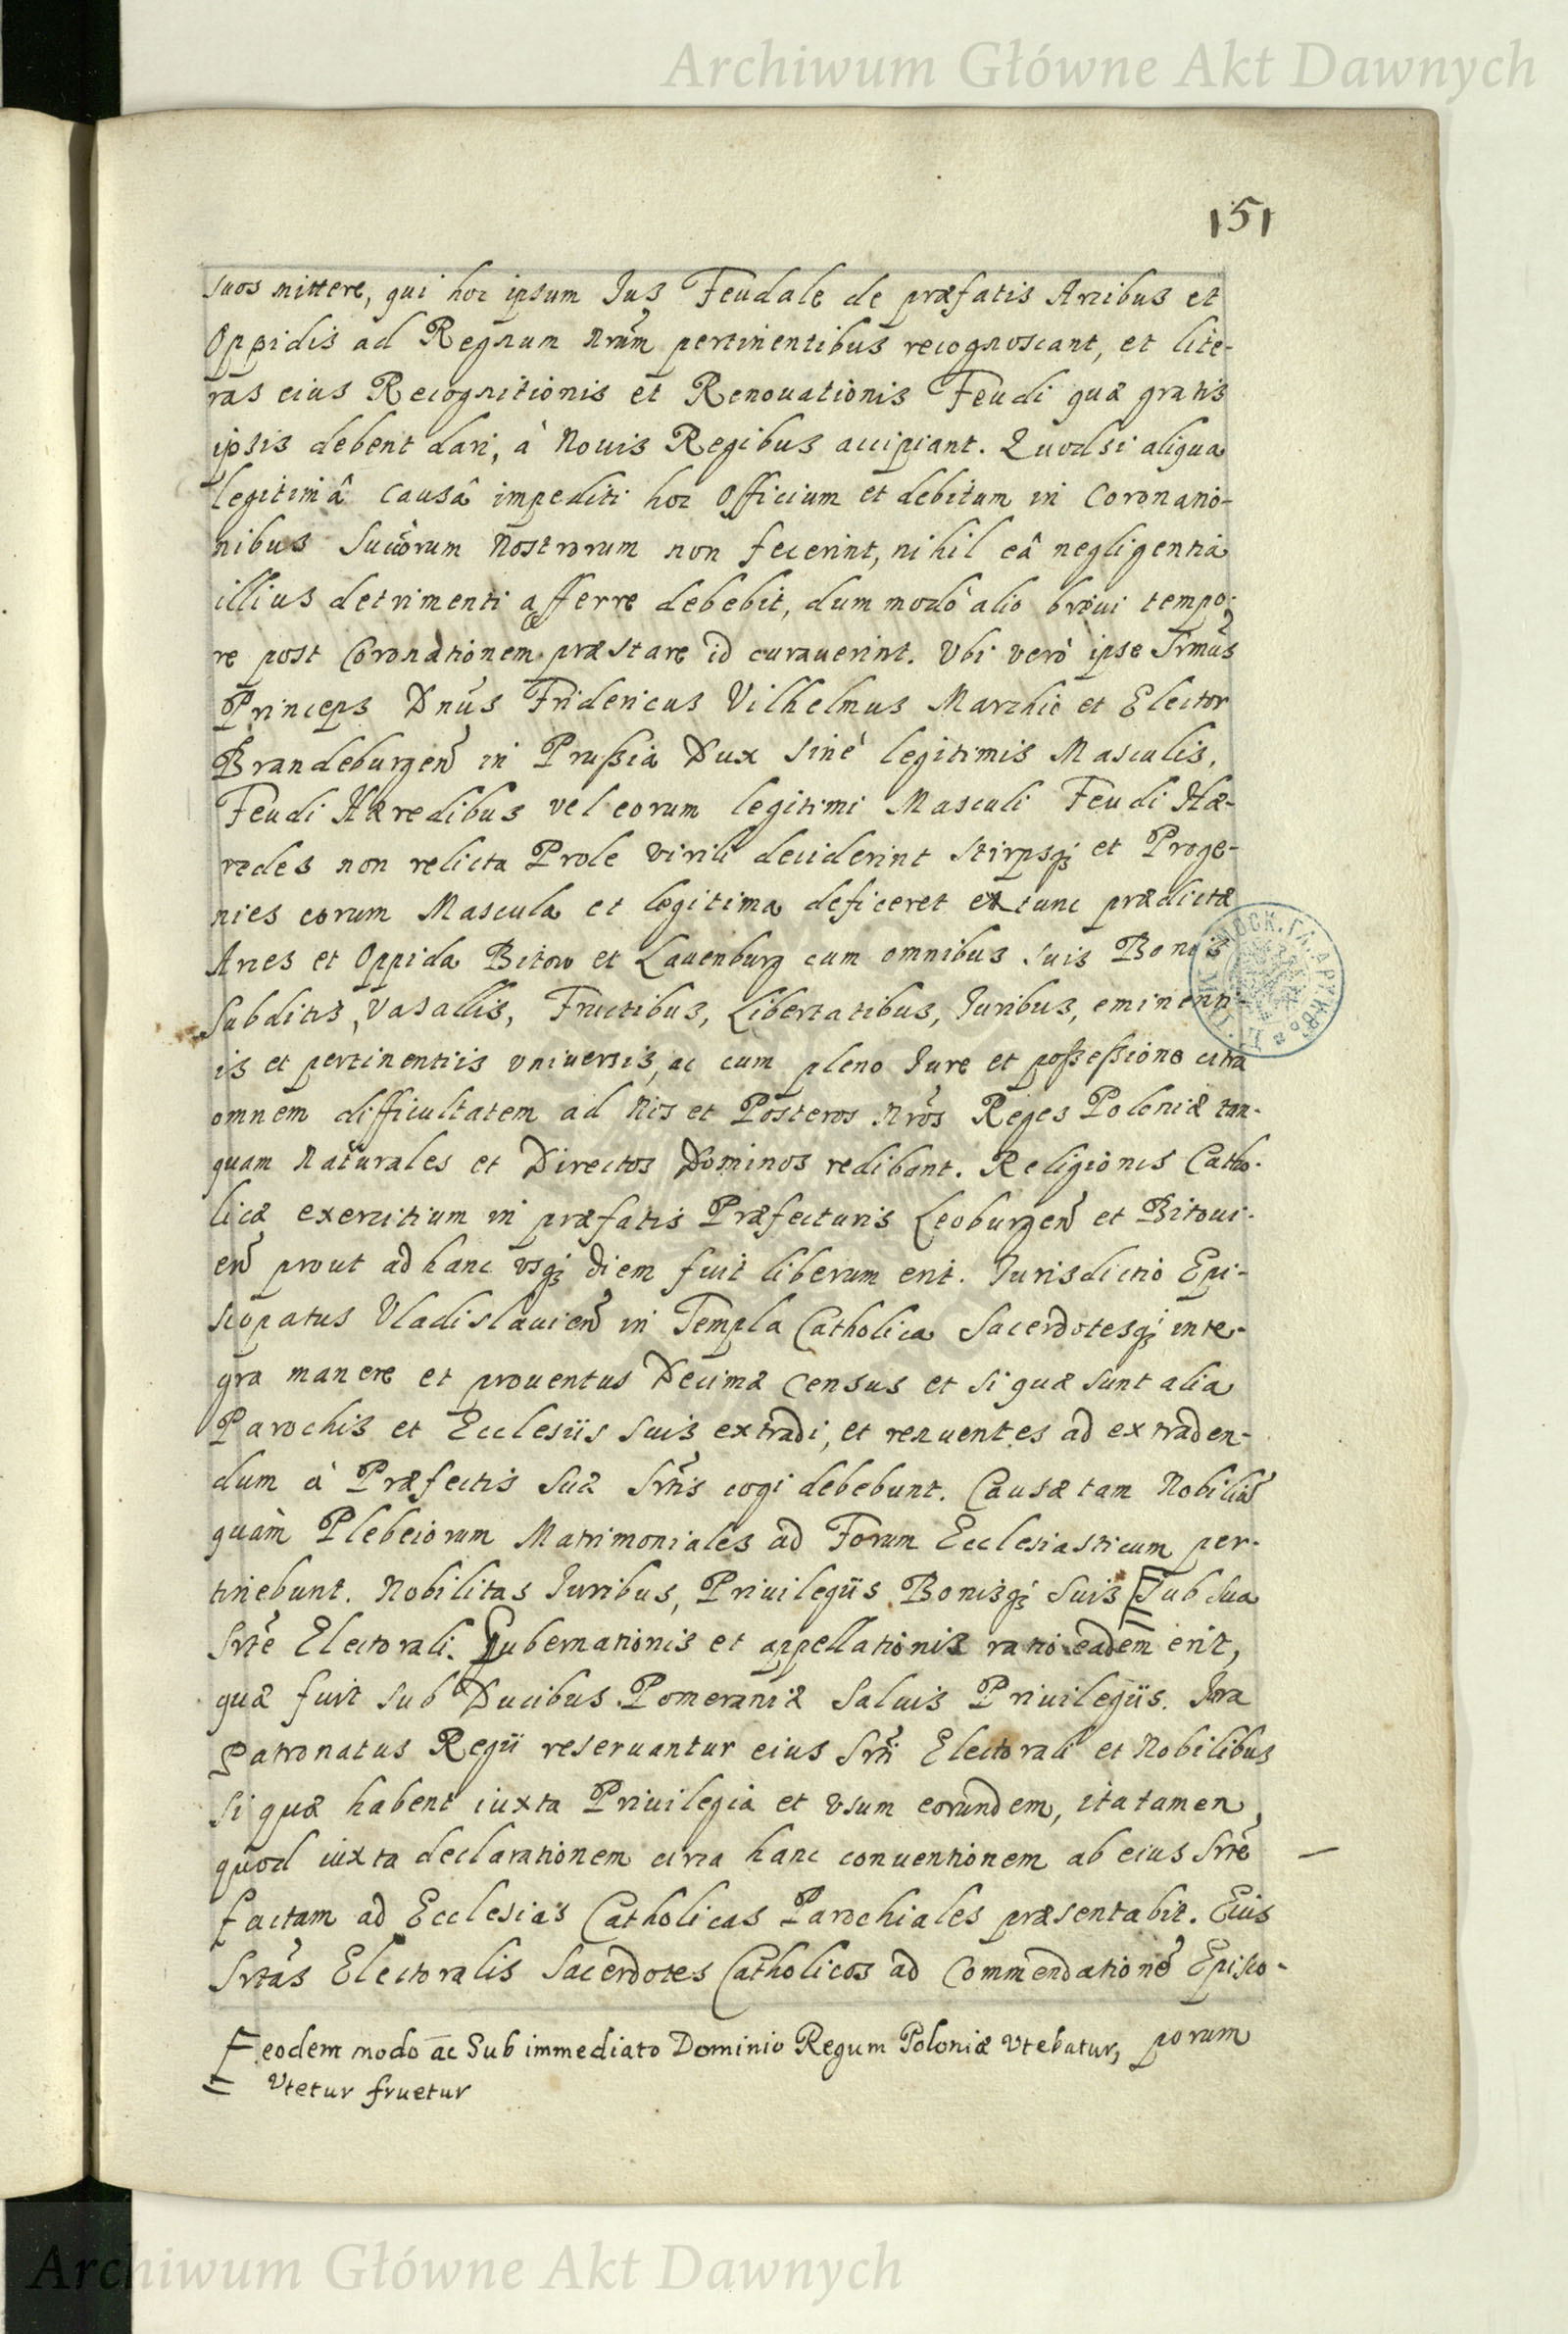 Archiwum Główne Akt Dawnych
151
suos mittere, qui hoc ipsum Jus Feudale de præfatis Arcibus et
Oppidis ad Regnum nrũm pertinentibus recognoscant, et lite-
ras eius Recognitionis et Renouationis Feudi quæ gratis
ipsis debent dari, à Nouis Regibus accipiant. Quodsi aliqua
legitimâ causâ impediti hoc officium et debitum in Coronatio-
nibus Succõrum Nostrorum non fecerint, nihil eâ negligentia
illius detrimenti afferre debebit, dummodò alio breui tempo-
re post Coronationem præstare id curauerint. Vbi verò ipse Srmũs
Princeps Dnũs Fridericus Vilhelmus Marchio et Elector
Brandeburgeñ in Prußia Dux sinè legitimis Masculis,
Feudi Hæredibus vel eorum legitimi Masculi Feudi Hæ-
redes non relicta Prole virili deciderint stirpsq; et Proge-
nies eorum Mascula et legitima deficeret ex tunc prædictæ
Arces et Oppida Bitow et Lauenburg cum omnibus suis Bonis
Subditis, Vasallis, Fructibus, Libertatibus, Juribus, eminenti-
is et pertinentiis vniuersis, ac cum pleno Jure et poßeßione citra
omnem difficultatem ad Nos et Posteros nrõs Reges Poloniæ tan-
quam Naturales et Directos Dominos redibunt. Religionis Catho-
licæ exercitium in præfatis Præfecturis Leoburgeñ et Bitoui-
eñ prout ad hanc vsq; diem fuit liberum erit. Jurisdictio Epi-
scopatus Vladislauieñ in Templa Catholica Sacerdotesq; inte-
gra manere et prouentus Decimæ Census et si quæ sunt alia
Parochis et Ecclesiis suis extradi, et renuentes ad extraden-
dum à Præfectis Suæ Srtĩs cogi debebunt. Causæ tam Nobiliũ
quàm Plebeiorum Matrimoniales ad Forum Ecclesiasticum per-
tinebunt. Nobilitas Juribus, Priuilegiis Bonisq; suis Sub sua
Srtẽ Electorali. Gubernationis et appellationis ratio eadem erit,
quæ fuit sub Ducibus Pomeraniæ Saluis Priuilegiis. Jura
Patronatus Regii reseruantur eius Srtĩ Electorali et Nobilibus
si quæ habent iuxta Priuilegia et vsum eorundem, ita tamen,
quod iuxta declarationem circa hanc conuentionem ab eius Srtẽ
factam ad Ecclesias Catholicas Parochiales præsentabit. Eius
Srtãs Electoralis Sacerdotes Catholicos ad Commendationẽ Episco-
porum
eodem modo ac Sub immediato Dominio Regum Poloniæ Vtebatur,
Vtetur fruetur
Archiwum Główne Akt Dawnych